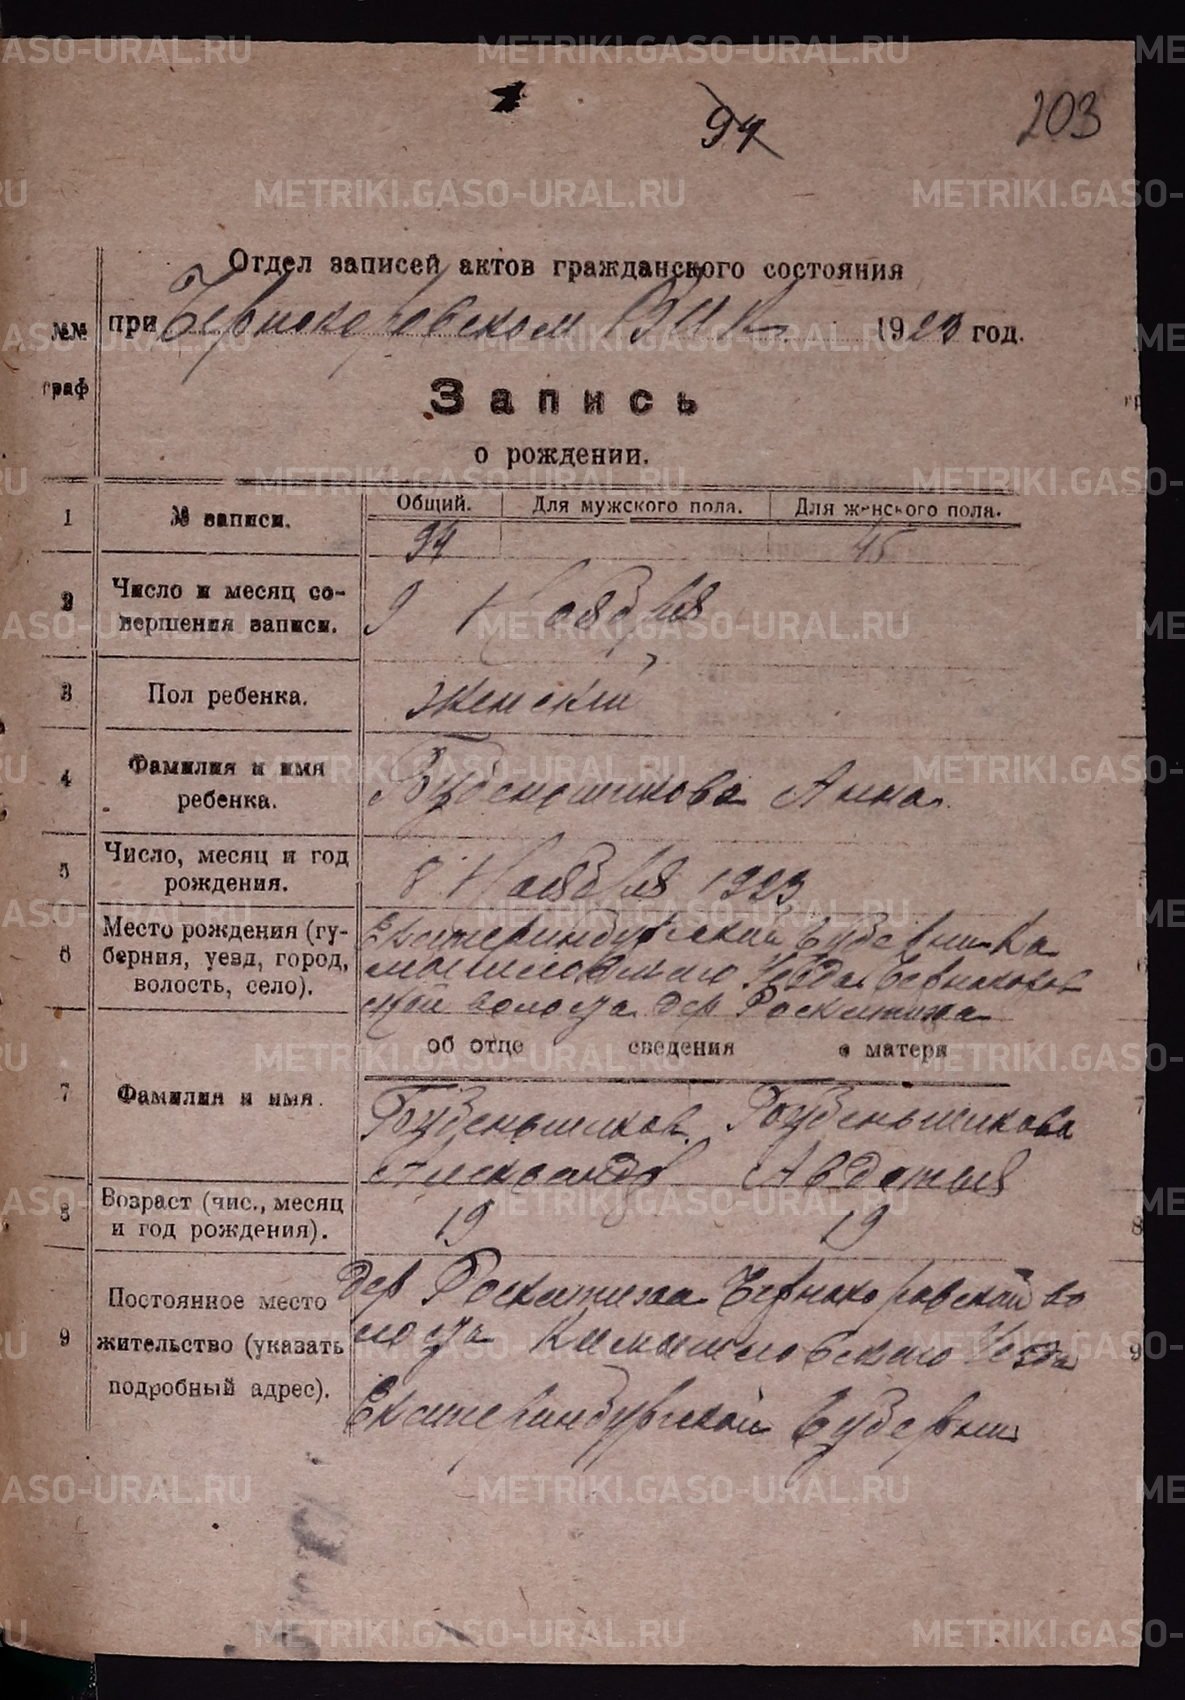 203
94
Отдел записей актов гражданского состояния
при Чернокоровском ВИК 1923 год.
№№ граф
Запись
о рождении.
1 № записи. Общий. Для мужского пола. Для женского пола.
94 45
2 Число и месяц совершения записи. 9 Ноября
3 Пол ребенка. женский
4 Фамилия и имя ребенка. Анна
5 Число, месяц и год рождения. 8 Ноября 1923
6 Место рождения (губерния, уезд, город, волость, село).
Екатеринбургской Губернии Ка
мышловскаго Уезда
волости дер
об отце сведения о матери
7 Фамилия и имя.
Александр Авдотья
8 Возраст (чис., месяц и год рождения). 19 19
9 Постоянное место жительство (указать подробный адрес).
дер Чернокоровской во
лости Камышловскаго Уезда
Екатеринбургской Губернии
METRIKI.GASO-URAL.RU